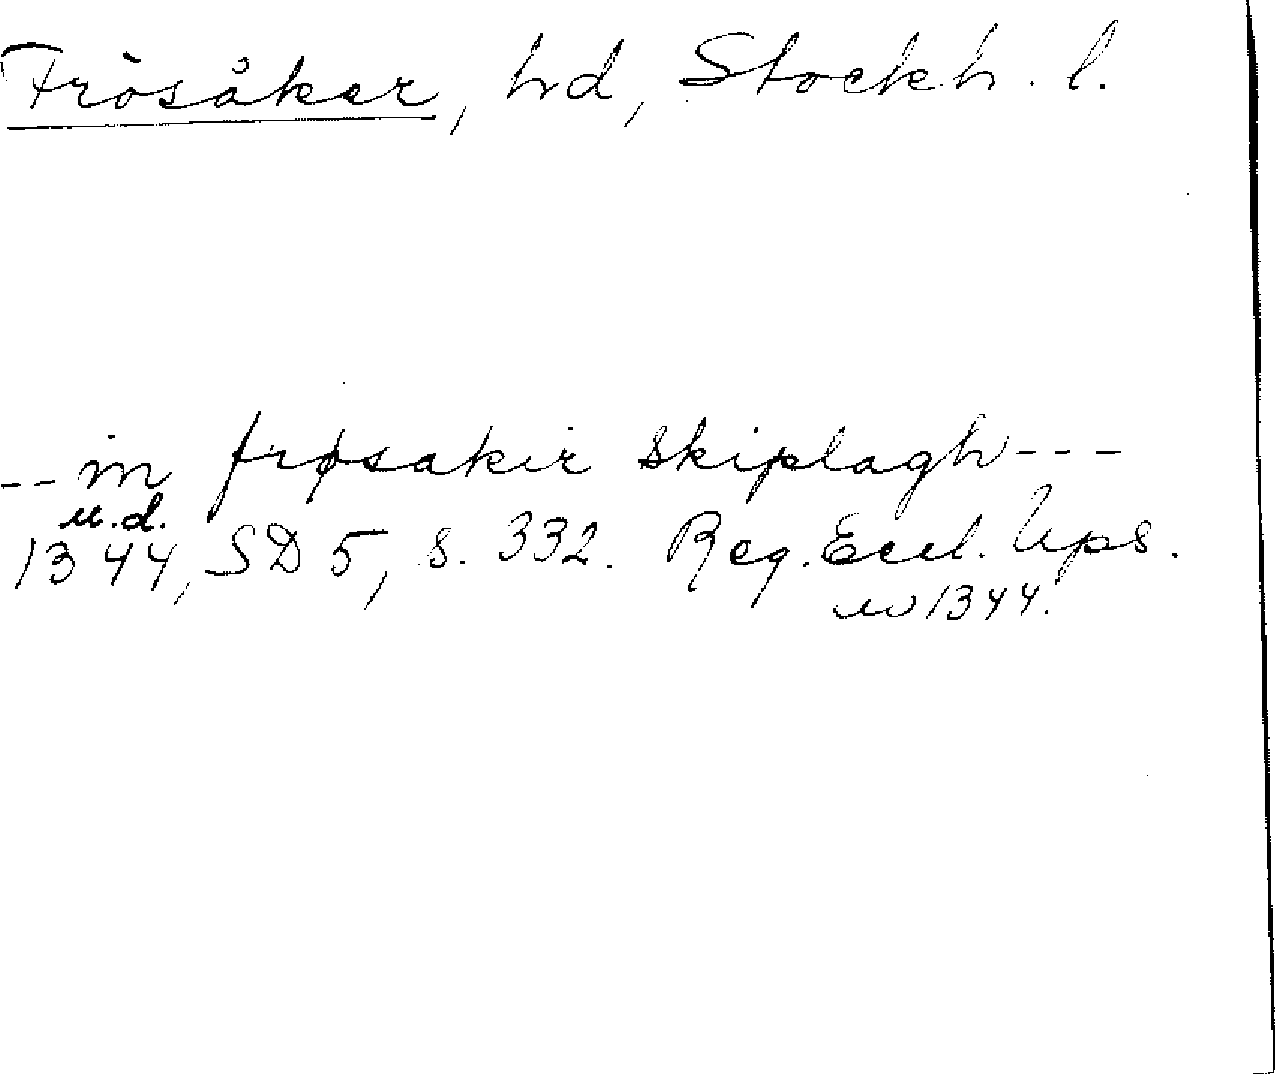 Frösåker, hd, Stockh. l.
-- in frøsakir skiplagh ---
u.d.
1344, SD 5, s. 332. Reg. Eccl. Ups.
1344.